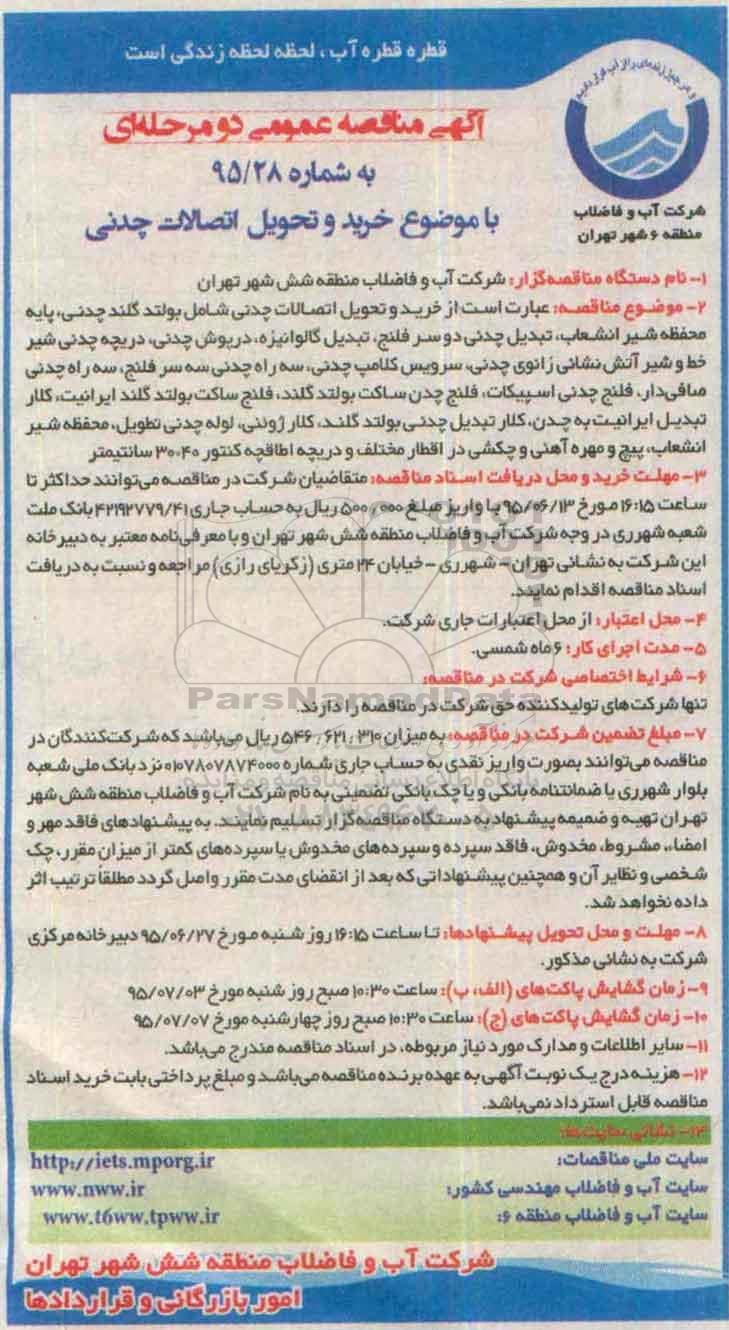 قطره قطره آب ، لحظه لحظه زندگی است
و هر چیز زنده‌ای را از آب قرار دادیم
شرکت آب و فاضلاب
منطقه ۶ شهر تهران
آگهی مناقصه عمومی دو مرحله‌ای
به شماره ۹۵/۲۸
با موضوع خرید و تحویل اتصالات چدنی
۱- نام دستگاه مناقصه‌گزار: شرکت آب و فاضلاب منطقه شش شهر تهران
۲- موضوع مناقصه: عبارت است از خرید و تحویل اتصالات چدنی شامل بولتد گلند چدنی، پایه
محفظه شیر انشعاب، تبدیل چدنی دو سر فلنج، تبدیل گالوانیزه، درپوش چدنی، دریچه چدنی شیر
خط و شیر آتش نشانی زانوی چدنی، سرویس کلامپ چدنی، سه راه چدنی سه سر فلنج، سه راه چدنی
صافی‌دار، فلنج چدنی اسپیکات، فلنج چدن ساکت بولتد گلند، فلنج ساکت بولتد گلند ایرانیت، کلار
تبدیل ایرانیت به چدن، کلار تبدیل چدنی بولتد گلند، کلار ژوئنی، لوله چدنی تطویل، محفظه شیر
انشعاب، پیچ و مهره آهنی و چکشی در اقطار مختلف و دریچه اطاقچه کنتور ۴۰*۳۰ سانتیمتر
۳- مهلت خرید و محل دریافت اسناد مناقصه: متقاضیان شرکت در مناقصه می‌توانند حداکثر تا
ساعت ۱۶:۱۵ مورخ ۹۵/۰۶/۱۳ با واریز مبلغ ۵۰۰/۰۰۰ ریال به حساب جاری ۴۲۱۹۲۷۷۹/۴۱ بانک ملت
شعبه شهرری در وجه شرکت آب و فاضلاب منطقه شش شهر تهران و با معرفی‌نامه معتبر به دبیرخانه
این شرکت به نشانی تهران – شهرری – خیابان ۲۴ متری (زکریای رازی) مراجعه و نسبت به دریافت
اسناد مناقصه اقدام نمایند.
۴- محل اعتبار: از محل اعتبارات جاری شرکت.
۵- مدت اجرای کار: ۶ ماه شمسی.
۶- شرایط اختصاصی شرکت در مناقصه:
تنها شرکت‌های تولیدکننده حق شرکت در مناقصه را دارند.
ParsNamadData
۷- مبلغ تضمین شرکت در مناقصه: به میزان ۵۴۶/۶۲۱/۳۱۰ ریال می‌باشد که شرکت‌کنندگان در
مناقصه می‌توانند بصورت واریز نقدی به حساب جاری شماره ۰۱۰۷۸۰۷۸۷۴۰۰۰ نزد بانک ملی شعبه
بلوار شهرری یا ضمانتنامه بانکی و یا چک بانکی تضمینی به نام شرکت آب و فاضلاب منطقه شش شهر
تهران تهیه و ضمیمه پیشنهاد به دستگاه مناقصه‌گزار تسلیم نمایند. به پیشنهادهای فاقد مهر و
امضاء، مشروط، مخدوش، فاقد سپرده و سپرده‌های مخدوش یا سپرده‌های کمتر از میزان مقرر، چک
شخصی و نظایر آن و همچنین پیشنهاداتی که بعد از انقضای مدت مقرر واصل گردد مطلقاً ترتیب اثر
داده نخواهد شد.
۸- مهلت و محل تحویل پیشنهادها: تا ساعت ۱۶:۱۵ روز شنبه مورخ ۹۵/۰۶/۲۷ دبیرخانه مرکزی
شرکت به نشانی مذکور.
۹- زمان گشایش پاکت‌های (الف، ب): ساعت ۱۰:۳۰ صبح روز شنبه مورخ ۹۵/۰۷/۰۳
۱۰- زمان گشایش پاکت‌های (ج): ساعت ۱۰:۳۰ صبح روز چهارشنبه مورخ ۹۵/۰۷/۰۷
۱۱- سایر اطلاعات و مدارک مورد نیاز مربوطه، در اسناد مناقصه مندرج می‌باشد.
۱۲- هزینه درج یک نوبت آگهی به عهده برنده مناقصه می‌باشد و مبلغ پرداختی بابت خرید اسناد
مناقصه قابل استرداد نمی‌باشد.
۱۳- نشانی سایت‌ها:
سایت ملی مناقصات: http://iets.mporg.ir
سایت آب و فاضلاب مهندسی کشور: www.nww.ir
سایت آب و فاضلاب منطقه ۶: www.t6ww.tpww.ir
شرکت آب و فاضلاب منطقه شش شهر تهران
امور بازرگانی و قراردادها